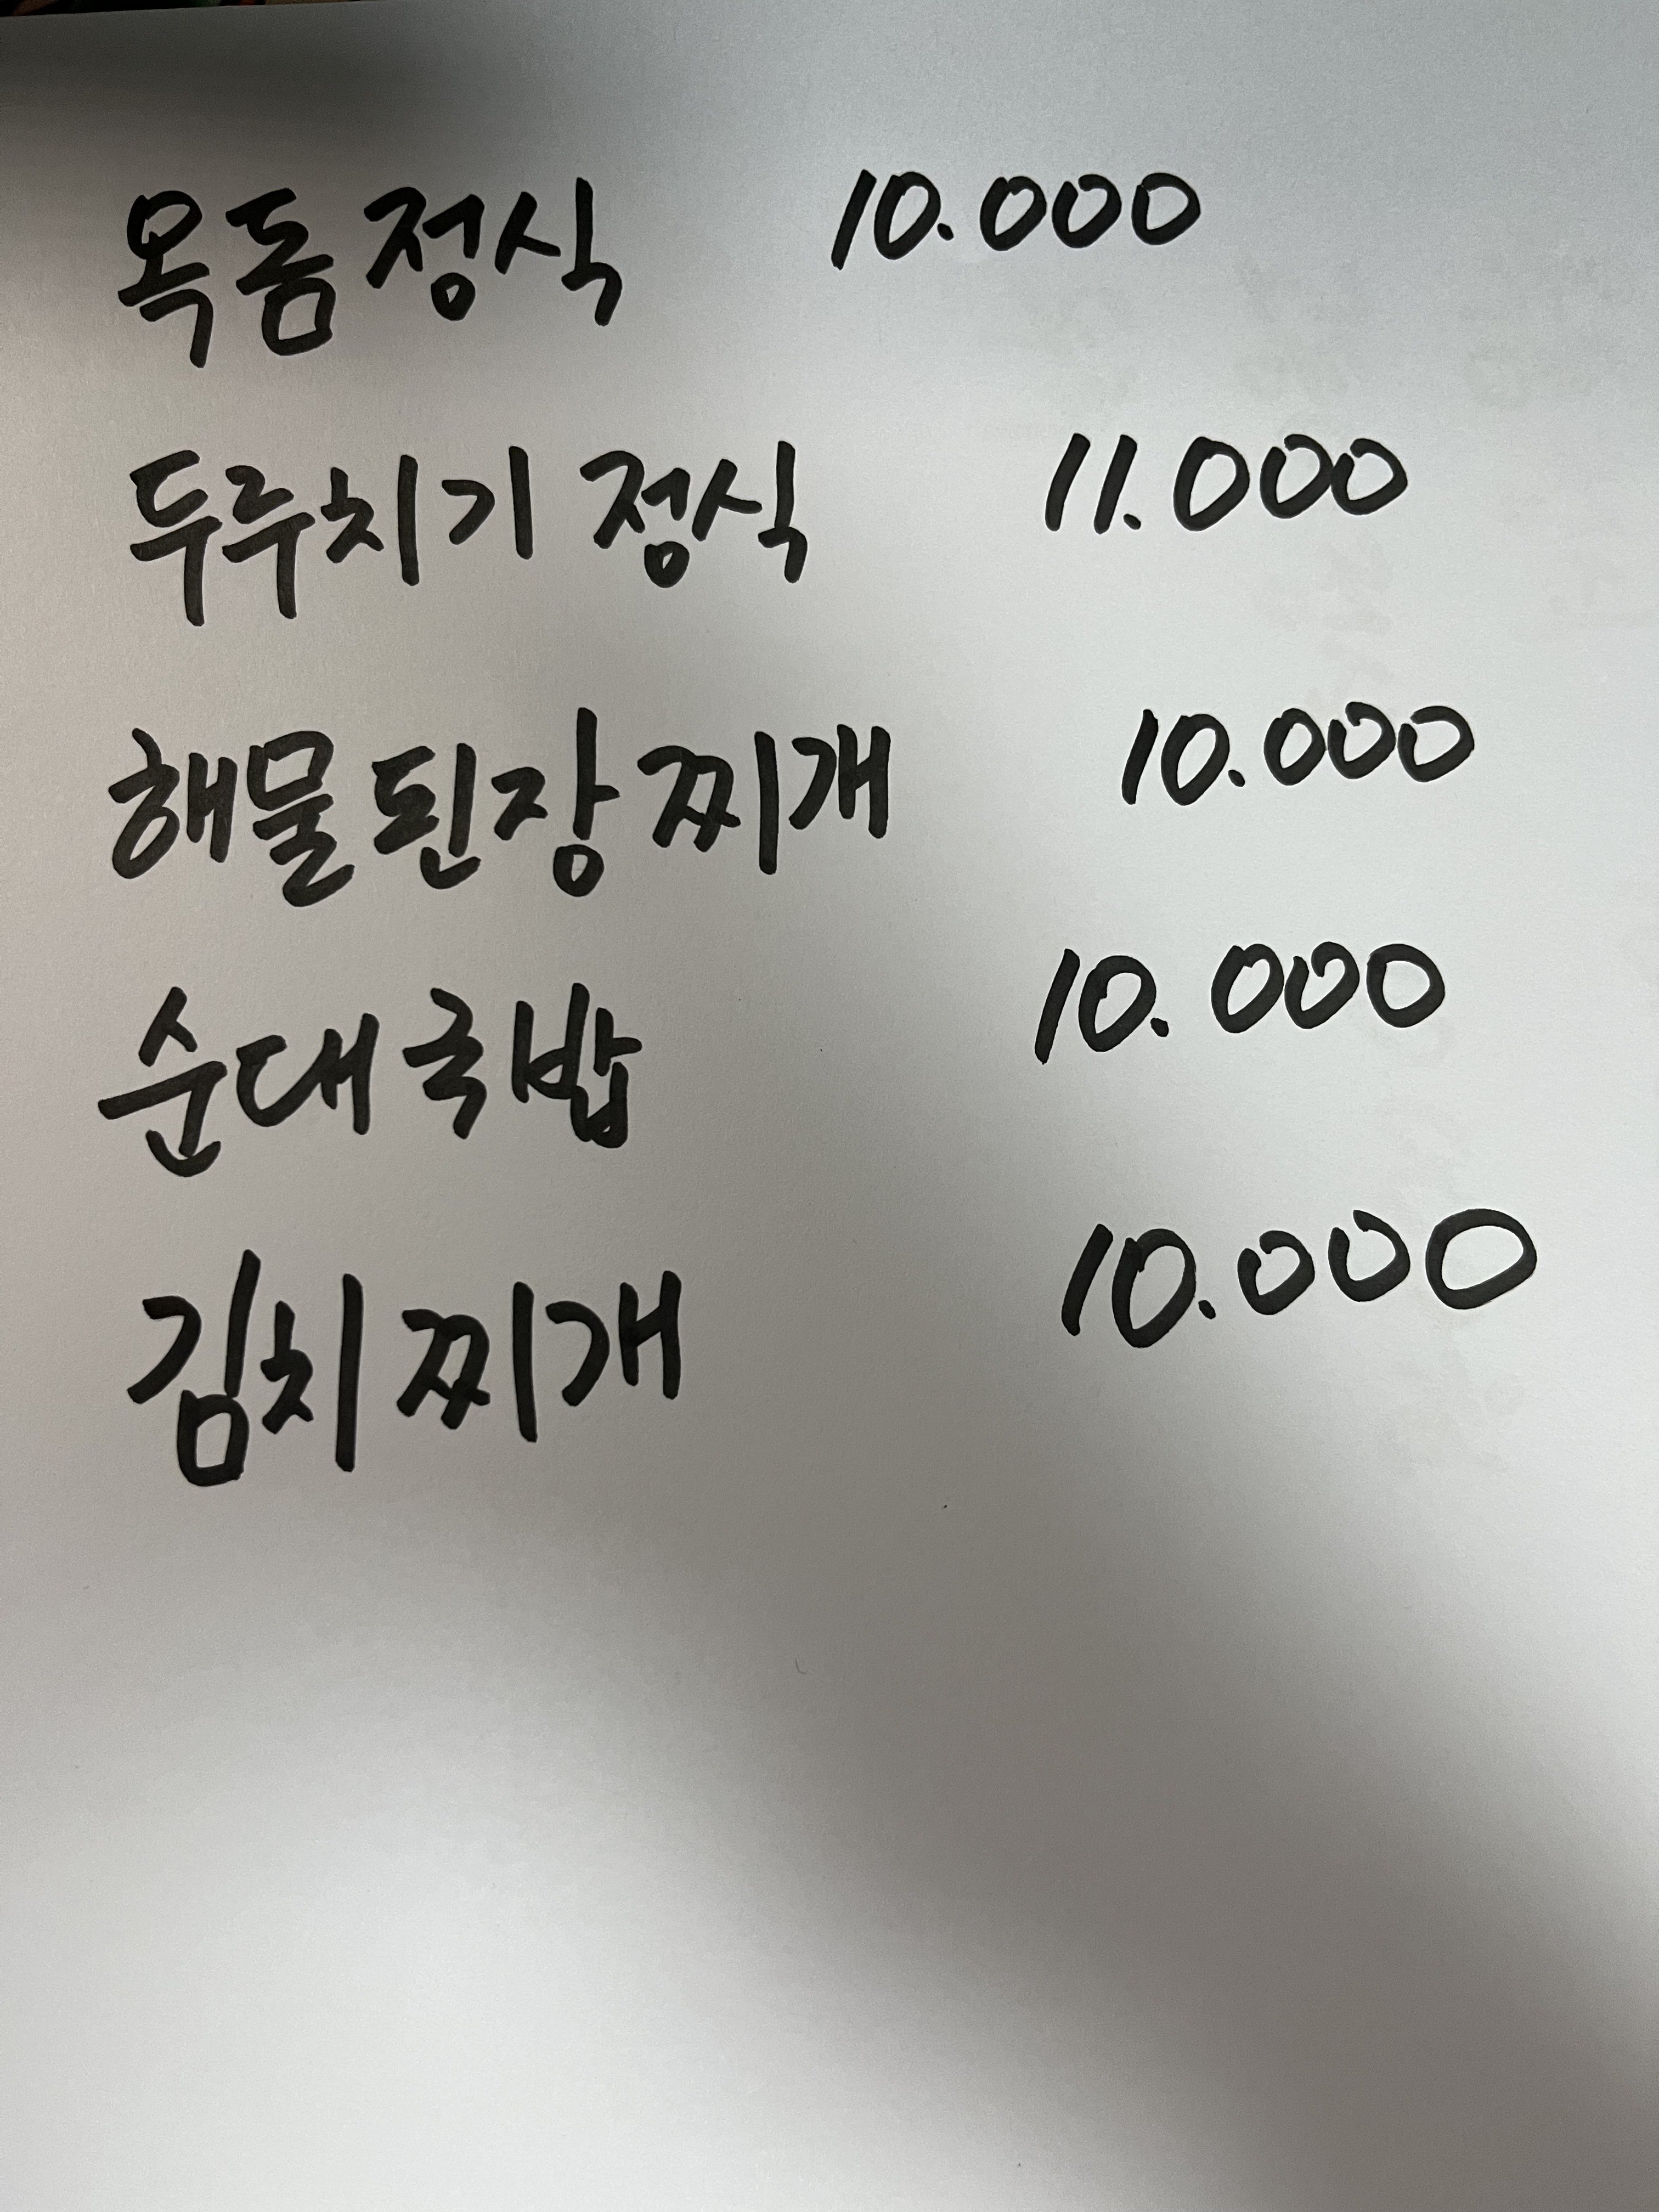 옥돔정식 10.000
두루치기 정식 11.000
해물된장찌개 10.000
순대국밥 10.000
김치찌개 10.000